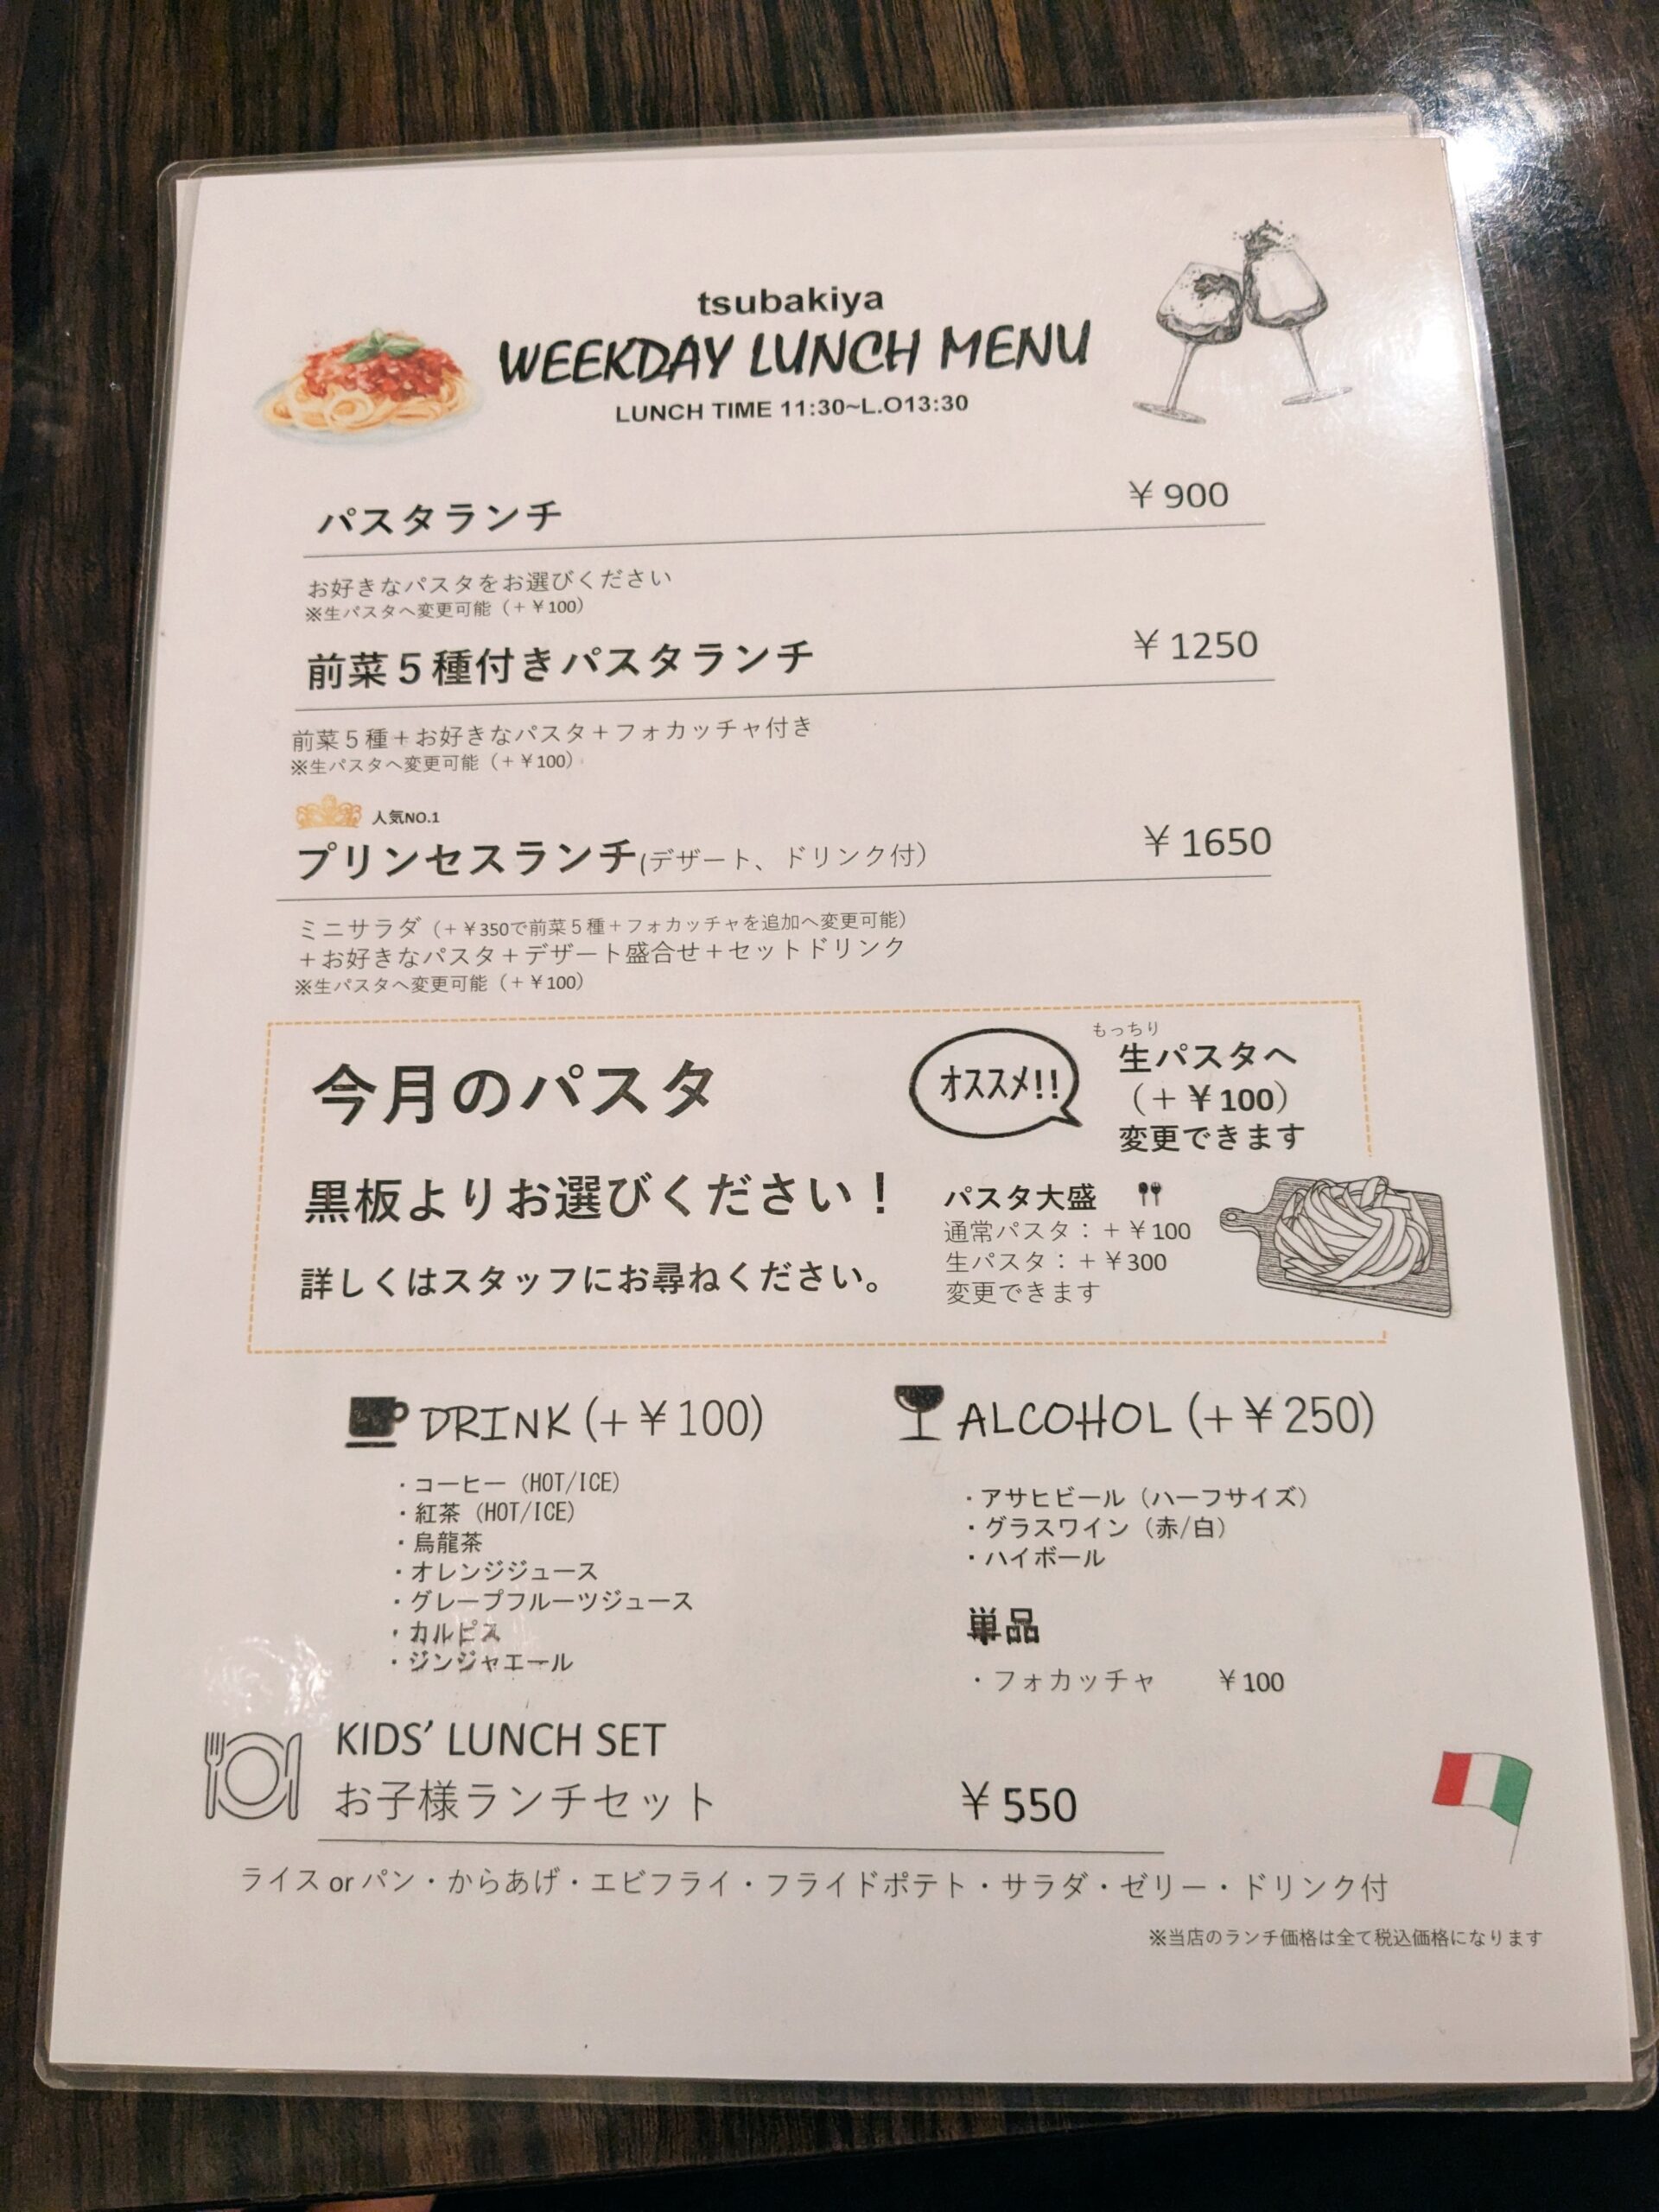 tsubakiya
WEEKDAY LUNCH MENU
LUNCH TIME 11:30~L.O13:30
パスタランチ ￥900
お好きなパスタをお選びください
※生パスタへ変更可能（+￥100）
前菜５種付きパスタランチ ￥1250
前菜５種＋お好きなパスタ＋フォカッチャ付き
※生パスタへ変更可能（+￥100）
人気NO.1
プリンセスランチ(デザート、ドリンク付） ￥1650
ミニサラダ（+￥350で前菜５種＋フォカッチャを追加へ変更可能）
＋お好きなパスタ＋デザート盛合せ＋セットドリンク
※生パスタへ変更可能（+￥100）
今月のパスタ
黒板よりお選びください！
詳しくはスタッフにお尋ねください。
オススメ!!
もっちり
生パスタへ
（+￥100）
変更できます
パスタ大盛
通常パスタ：+￥100
生パスタ：+￥300
変更できます
DRINK (+￥100)
・コーヒー（HOT/ICE）
・紅茶（HOT/ICE）
・烏龍茶
・オレンジジュース
・グレープフルーツジュース
・カルピス
・ジンジャエール
ALCOHOL (+￥250)
・アサヒビール（ハーフサイズ）
・グラスワイン（赤/白）
・ハイボール
単品
・フォカッチャ ￥100
KIDS’ LUNCH SET
お子様ランチセット ￥550
ライス or パン・からあげ・エビフライ・フライドポテト・サラダ・ゼリー・ドリンク付
※当店のランチ価格は全て税込価格になります